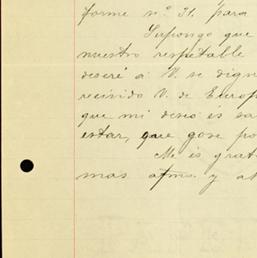 forme n.º 31. para
Supongo que
nuestro respetable
deseré á V. se dign
recivido V. de Europ
que mi deseo és sa
estar, que gose po
Me és grat
mas atms. y at